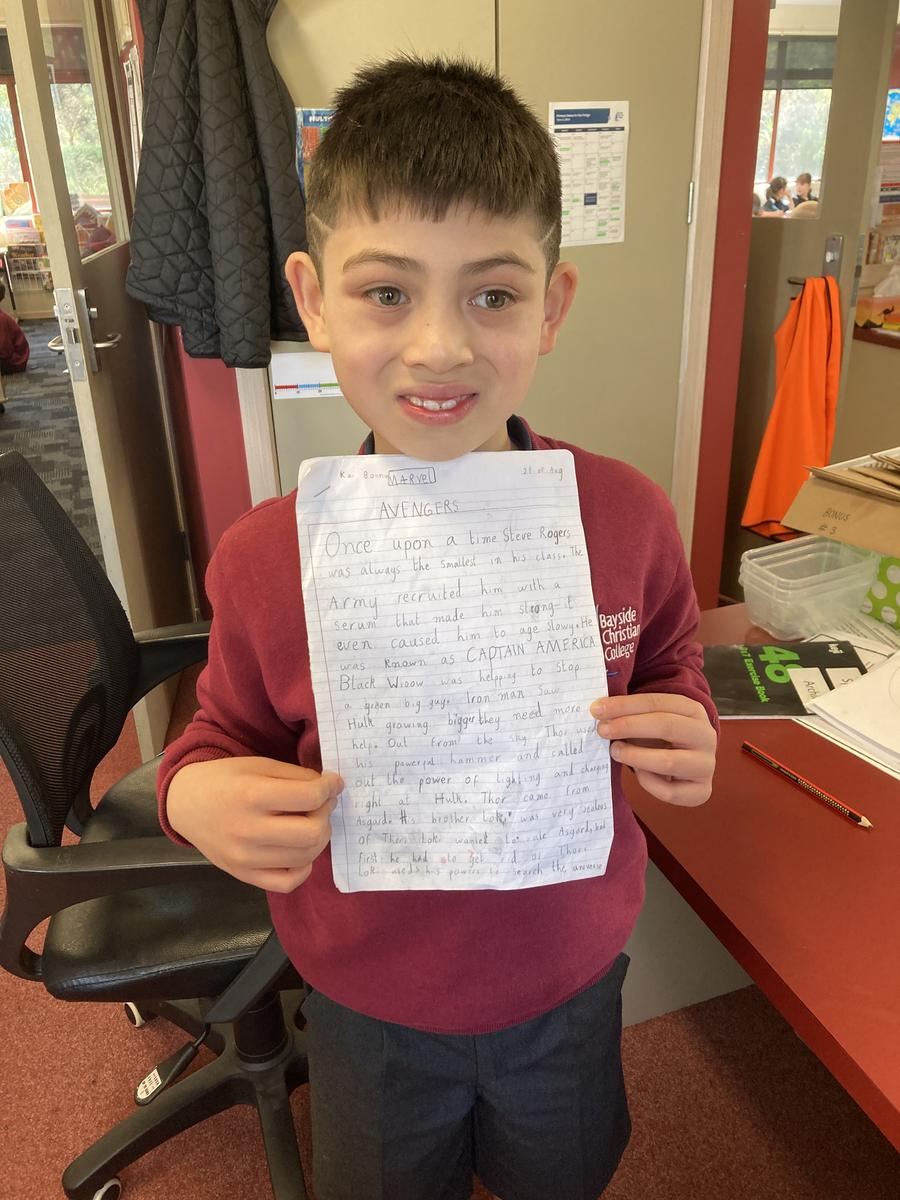 MARVEL
AVENGERS
Once upon a time Steve Rogers
was always the smallest in his class. The
Army recruited him with a
serum that made him strong it
even caused him to age slowy. He
was known as CAPTAIN AMERICA.
Black Widow was helping to stop
a green big guy. Iron man Saw
Hulk growing bigger they need more
help. Out from the sky Thor used
his powerful hammer and called
out the power of lighting and charging
right at Hulk. Thor came from
Asgard. His brother Loki was very Jealous
of Thor. Loki wanted to rule Asgard, but
first he had to get rid of Thor.
Loki used his powers to search the universe
Bayside
Christian
College
BONUS
# 3
48
Exercise Book